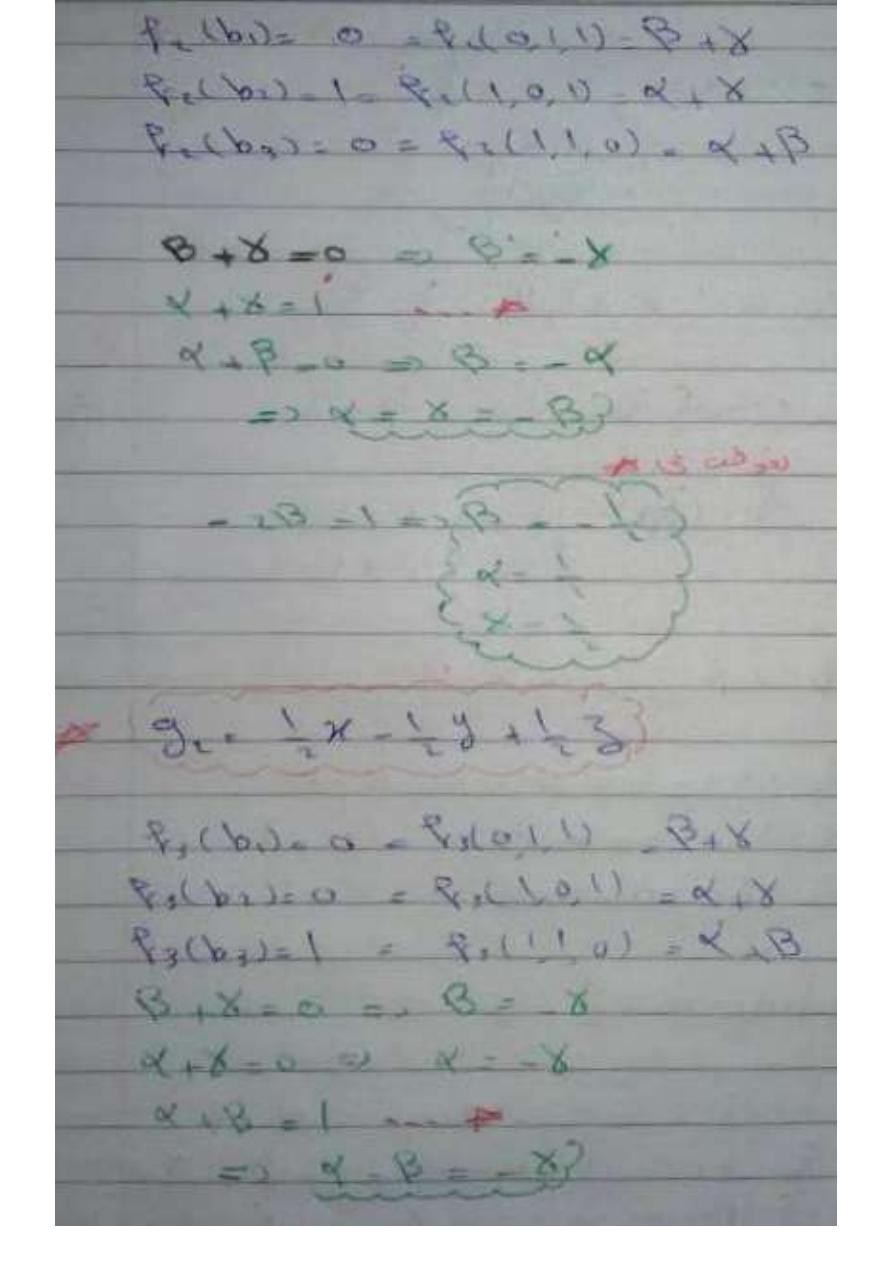 f₂(b₁) = 0 = f₂(0,1,1) = β + γ
f₂(b₂) = 1 = f₂(1,0,1) = α + γ
f₂(b₃) = 0 = f₂(1,1,0) = α + β
β + γ = 0 ⇒ β = -γ
α + γ = 1 ....
α + β = 0 ⇒ β = -α
⇒ α = γ = -β
-2β = 1 ⇒ β = -1/2
α = 1/2
γ = 1/2
g₂ = 1/2 x - 1/2 y + 1/2 z
f₃(b₁) = 0 = f₃(0,1,1) = β + γ
f₃(b₂) = 0 = f₃(1,0,1) = α + γ
f₃(b₃) = 1 = f₃(1,1,0) = α + β
β + γ = 0 ⇒ β = -γ
α + γ = 0 ⇒ α = -γ
α + β = 1 ....
⇒ α = β = -γ